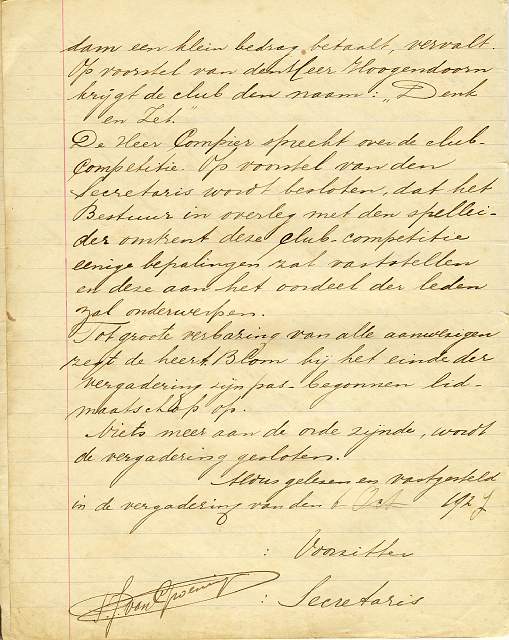 dam een klein bedrag betaalt, vervalt.
Op voorstel van den Heer Hoogendoorn
krijgt de club den naam: "Denk
en Zet."
De Heer Compier spreekt over de club-
competitie. Op voorstel van den
Secretaris wordt besloten, dat het
Bestuur in overleg met den spellei-
der omtrent deze club-competitie
eenige bepalingen zal vaststellen
en deze aan het oordeel der leden
zal onderwerpen.
Tot groote verbazing van alle aanwezigen
zegt de heer A. Blom bij het einde der
vergadering zijn pas-begonnen lid-
maatschap op.
Niets meer aan de orde zijnde, wordt
de vergadering gesloten.
Aldus gelezen en vastgesteld
in de vergadering van den 6 Oct 1927
: Voorzitter
: Secretaris